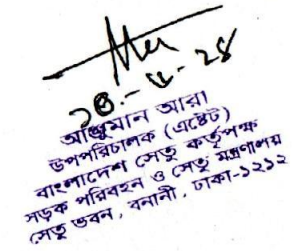 আঞ্জুমান আরা
উপপরিচালক (এষ্টেট)
বাংলাদেশ সেতু কর্তৃপক্ষ
সড়ক পরিবহন ও সেতু মন্ত্রণালয়
সেতু ভবন, বনানী, ঢাকা-১২১২